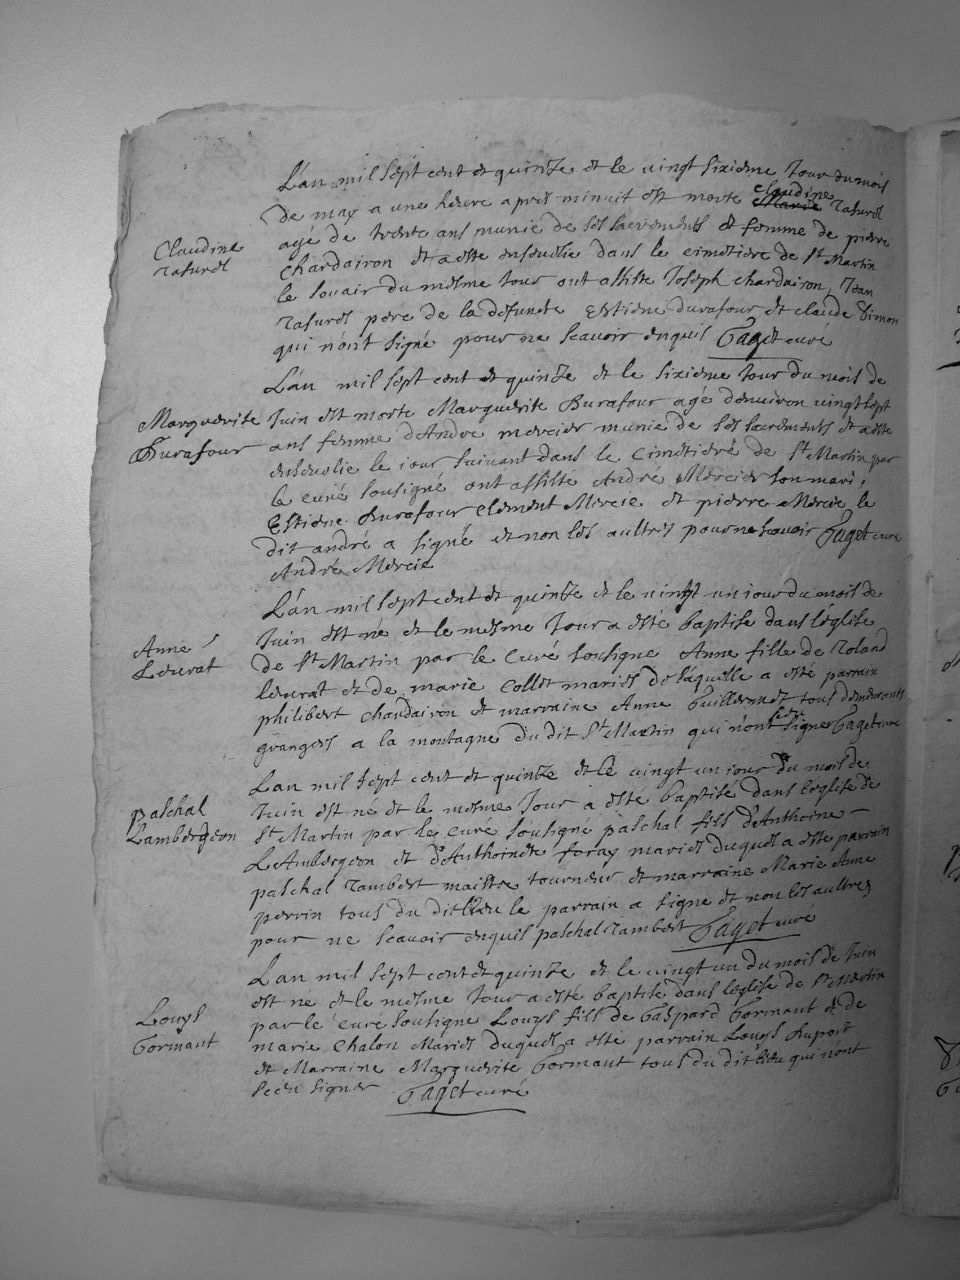 L'an mil sept cent et quinze et le vingt sixieme Jour du mois
de may a une heure apres minuit est morte claudine Marie rasurel
Claudine
rasurel
agé de trente ans munie de ses sacrements et femme de pierre
chardairon et a esté ensevelie dans le cimetiere de St Martin
le souair du mesme Jour ont assisté Joseph chardairon, Jean
rasurel pere de la defuncte Estiene durafour et claude Simon
qui n'ont signé pour ne scavoir enquis curé
L'an mil sept cent et quinze et le sixieme Jour du mois de
Marguerite
Durafour
Juin est morte Marguerite Durafour agé denviron vingt sept
ans femme d'Andre mercier munie de ses sacrements et a esté
ensevelie le jour suivant dans le cimetiere de St Martin par
le curé sousigné ont assisté André Mercier son mari,
Estiene Durafour Clement Mercie et pierre Mercie le
dit andré a signé et non les aultres pour ne scavoir curé
André Mercie
L'an mil sept cent et quinze et le vingt un iour du mois de
Anne
Leurat
Juin est né et le mesme Jour a esté baptisé dans l'église
de St Martin par le curé sousigne Anne fille de roland
leurat et de marie Collet mariés de laquelle a esté parrain
philibert chardairon et marraine Anne Guillermet tous demeurants
grangers a la montagne du dit St Martin qui n'ont signe curé
L'an mil sept cent et quinze et le vingt un iour du mois de
Paschal
Lambergeon
Juin est né et le mesme Jour a esté baptisé dans l'église de
St Martin par le curé sousigné paschal fils d'Anthoine
Lambergeon et d'Anthoinete foray mariés duquel a esté parrain
paschal rambert maistre tourneur et marraine Marie Anne
perrin tous du dit lieu le parrain a signe et non les aultres
pour ne scavoir enquis paschal rambert curé
L'an mil sept cent et quinze et le vingt un du mois de Juin
est ne et le mesme Jour a esté baptisé dans l'église de St Martin
Louys
Gormant
par le curé sousigne Louys fils de Gaspard Gormant et de
marie Chalon Mariés duquel a esté parrain Louys Duport
et Marraine Marguerite Gormant tous du dit lieu qui n'ont
sceu signer curé